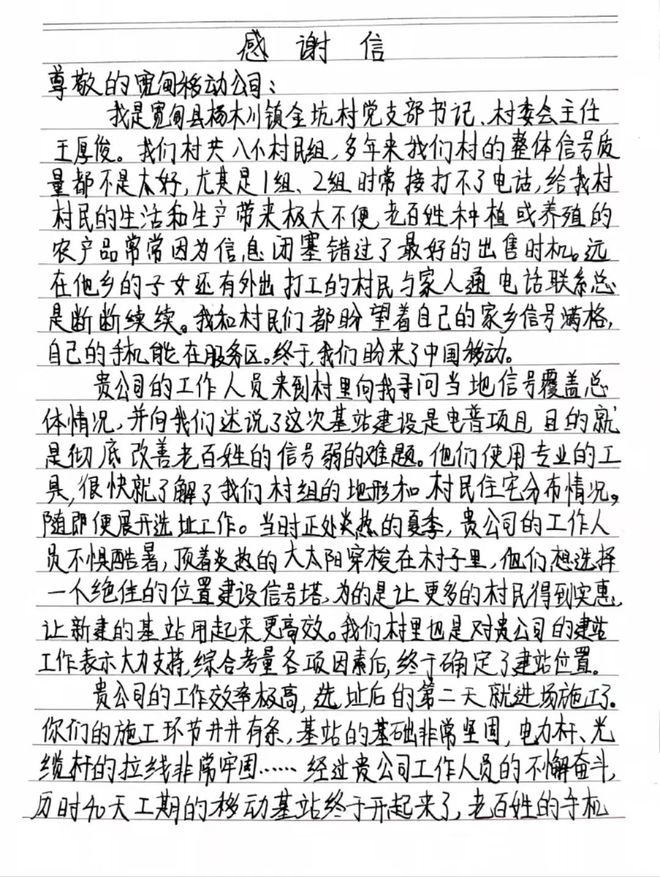 感谢信
尊敬的宽甸移动公司：
我是宽甸县杨木川镇金坑村党支部书记、村委会主任
王厚俊。我们村共八个村民组，多年来我们村的整体信号质
量都不是太好，尤其是1组、2组时常接打不了电话，给我村
村民的生活和生产带来极大不便，老百姓种植或养殖的
农产品常常因为信息闭塞错过了最好的出售时机。远
在他乡的子女还有外出打工的村民与家人通电话联系总
是断断续续。我和村民们都盼望着自己的家乡信号满格，
自己的手机能在服务区。终于，我们盼来了中国移动。
贵公司的工作人员来到村里向我寻问当地信号覆盖总
体情况，并向我们述说了这次基站建设是电普项目，目的就
是彻底改善老百姓的信号弱的难题。他们使用专业的工
具，很快就了解了我们村组的地形和村民住宅分布情况，
随即便展开选址工作。当时正处炎热的夏季，贵公司的工作人
员不惧酷暑，顶着炎热的大太阳穿梭在村子里，他们想选择
一个绝佳的位置建设信号塔，为的是让更多的村民得到实惠，
让新建的基站用起来更高效。我们村里也是对贵公司的建站
工作表示大力支持，综合考量各项因素后，终于确定了建站位置。
贵公司的工作效率极高，选址后的第二天就进场施工了。
你们的施工环节井井有条，基站的基础非常坚固，电力杆、光
缆杆的拉线非常牢固……经过贵公司工作人员的不懈奋斗，
历时40天工期的移动基站终于开起来了，老百姓的手机